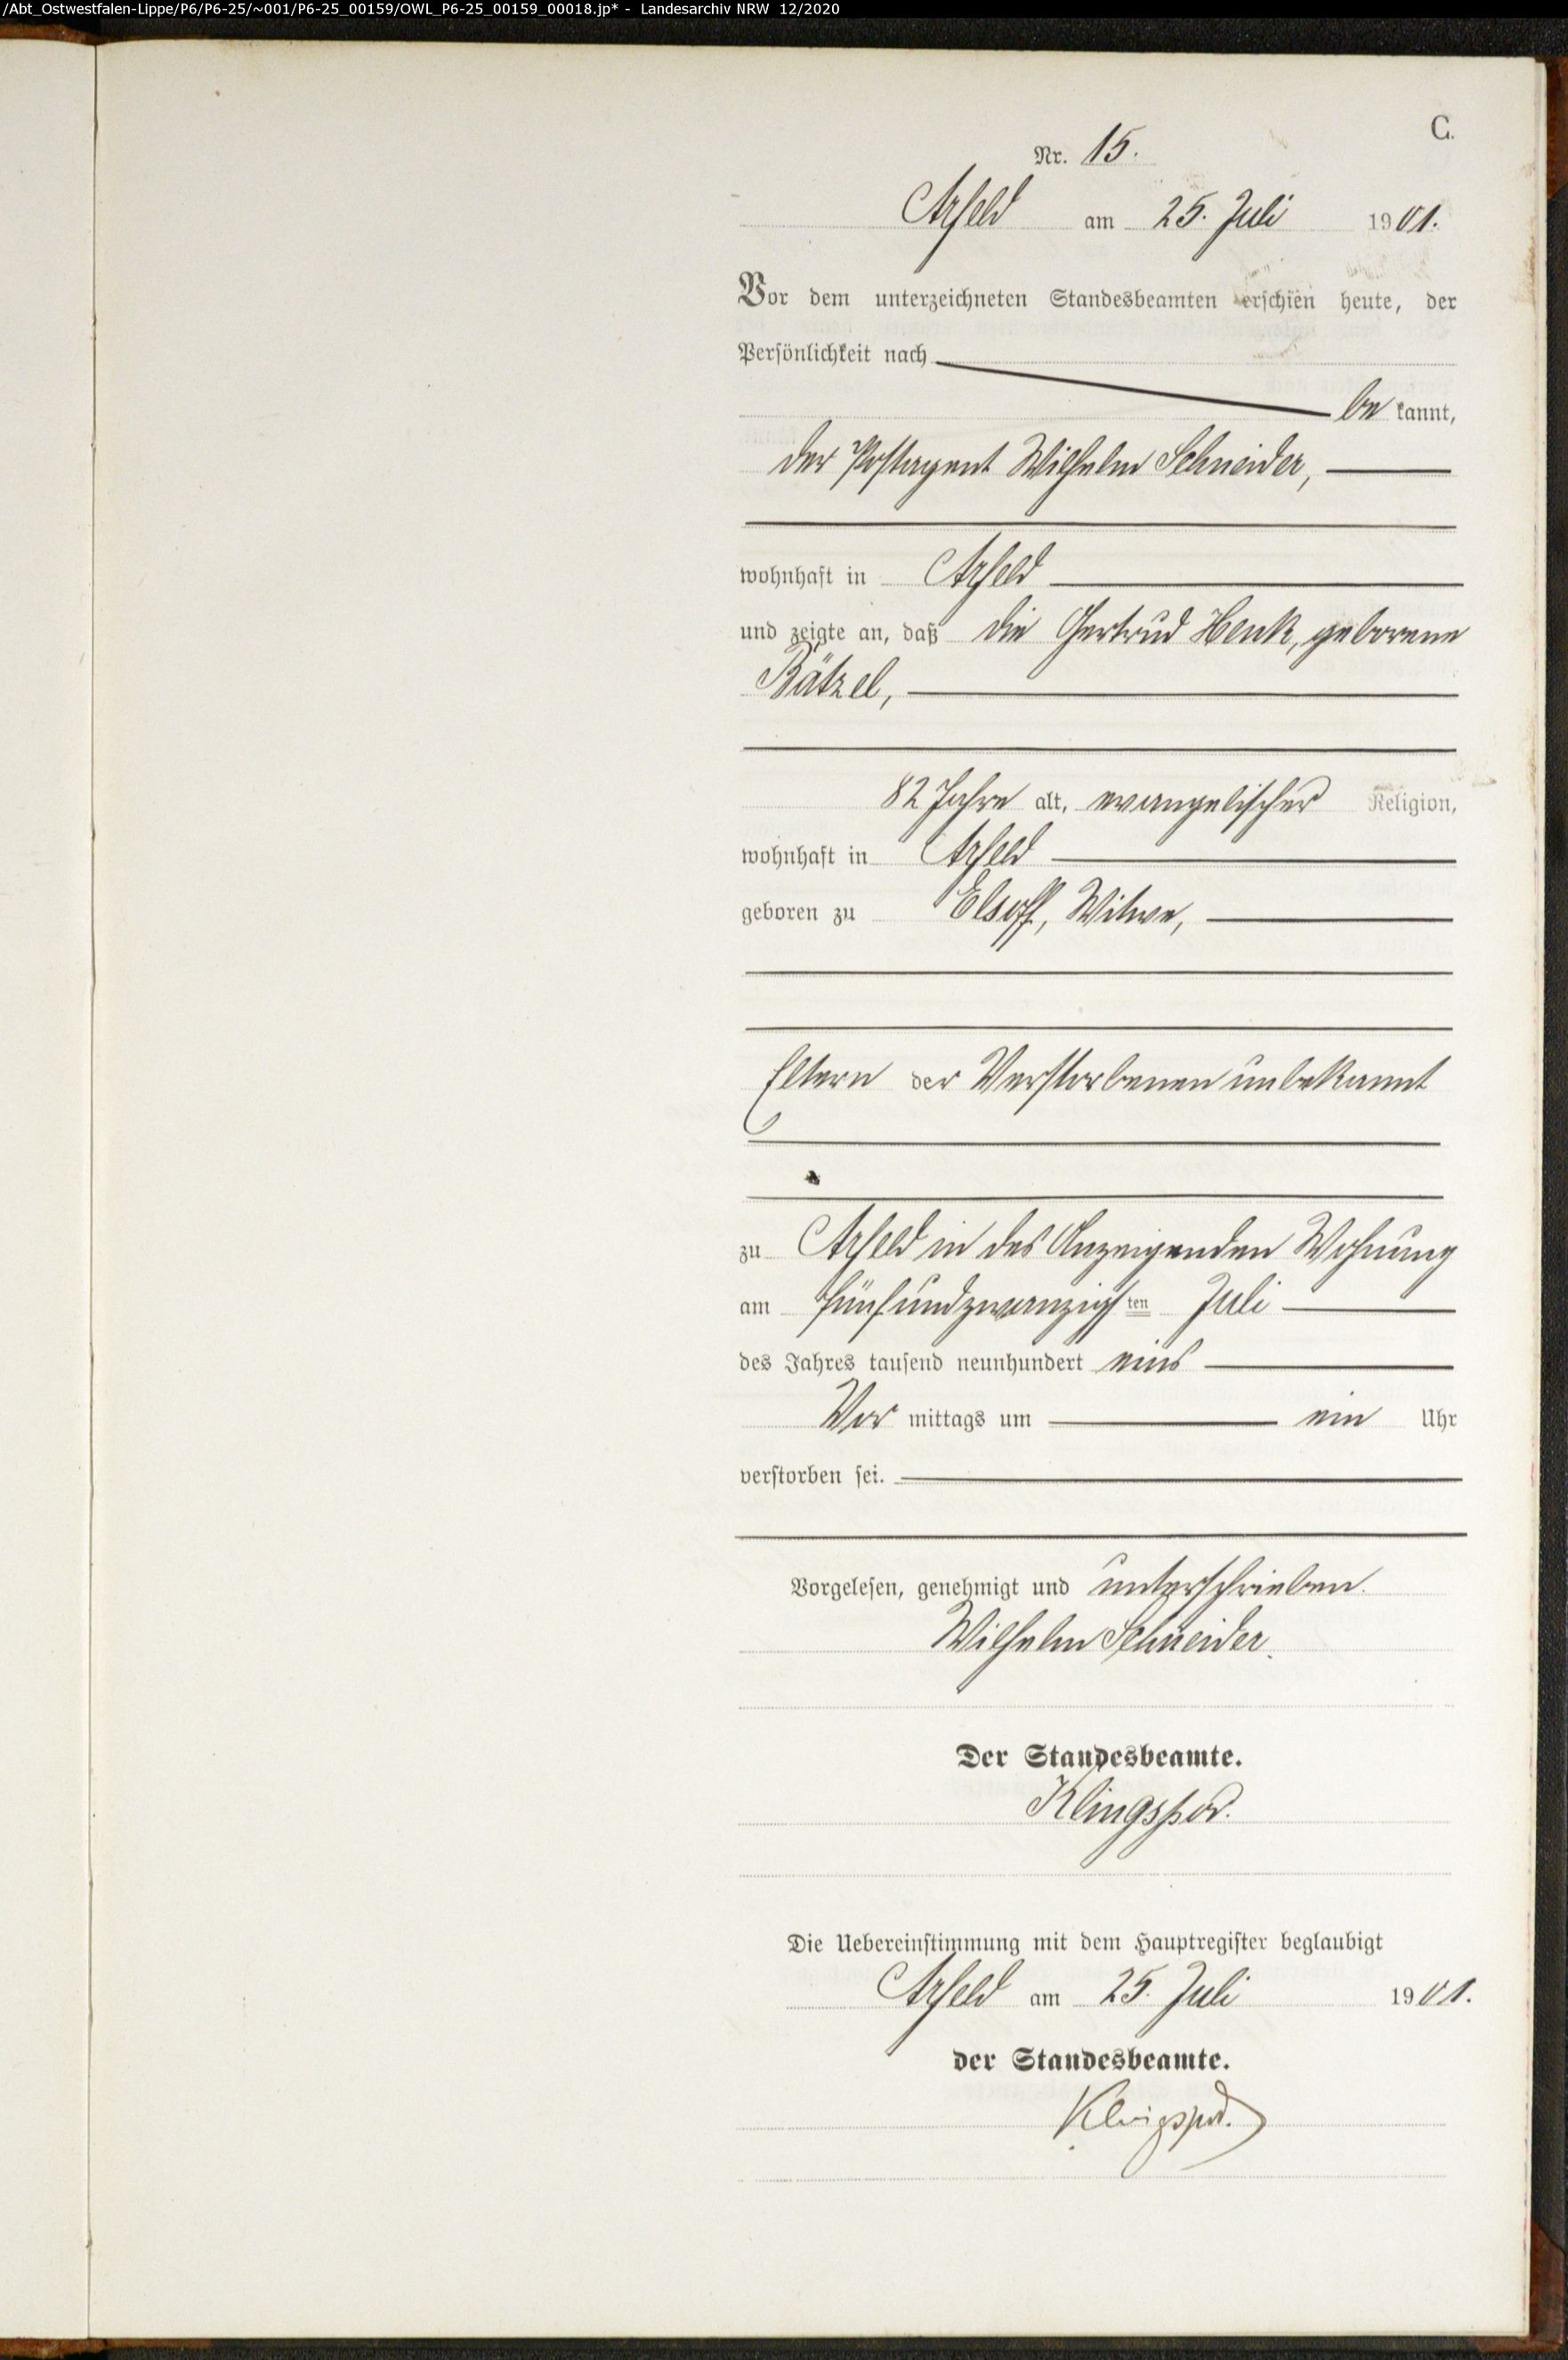 /Abt_Ostwestfalen-Lippe/P6/P6-25/~001/P6-25_00159/OWL_P6-25_00159_00018.jp* - Landesarchiv NRW 12/2020
C.
Nr. 15.
Arfeld am 25. Juli 1901.
Vor dem unterzeichneten Standesbeamten erschien heute, der
Persönlichkeit nach
be kannt,
der Postagent Wilhelm Schneider,
wohnhaft in Arfeld
und zeigte an, daß die Gertrud Henk, geborene
Bätzel,
82 Jahre alt, evangelischer Religion,
wohnhaft in Arfeld
geboren zu Elsoff, Witwe,
Eltern der Verstorbenen unbekannt
zu Arfeld in des Anzeigenden Wohnung
am fünfundzwanzigsten Juli
des Jahres tausend neunhundert eins
Vor mittags um ein Uhr
verstorben sei.
Vorgelesen, genehmigt und unterschrieben.
Wilhelm Schneider.
Der Standesbeamte.
Klingspor.
Die Uebereinstimmung mit dem Hauptregister beglaubigt
Arfeld am 25. Juli 1901.
der Standesbeamte.
Klingspor.